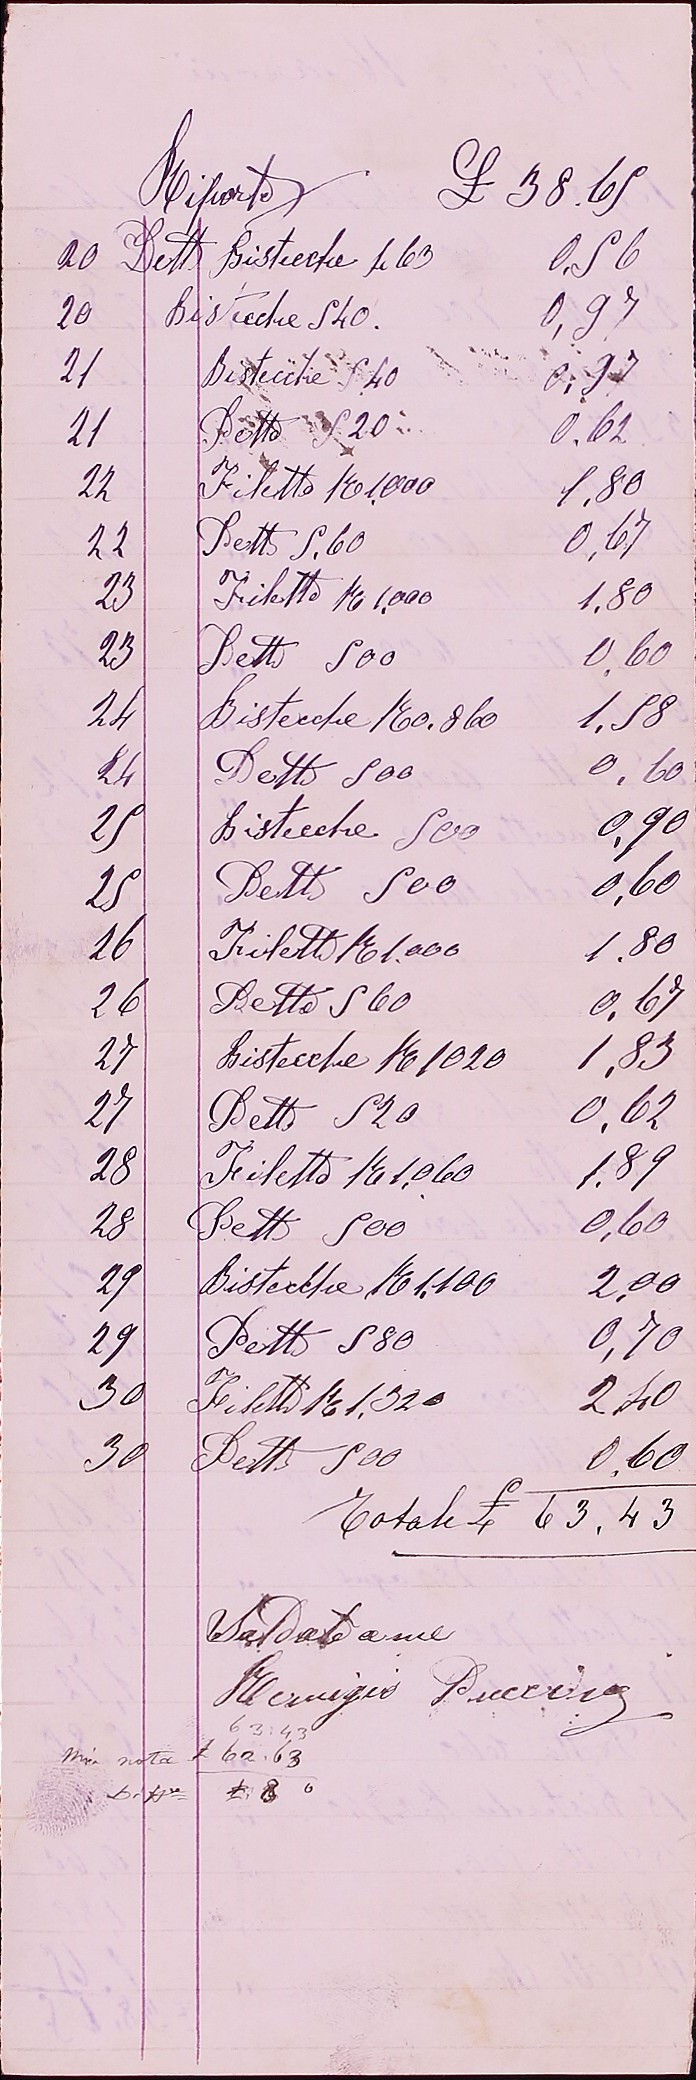 Riporto £ 38.65
20 Detto Bistecche 463 0.56
20 Bistecche 540. 0,97
21 Bistecche 540 0.97
21 Detto 520 0.62
22 Filetto K 1.000 1,80
22 Detto 5.60 0,67
23 Filetto K 1.000 1.80
23 Detto 500 0.60
24 Bistecche K 0.860 1.58
24 Detto 500 0.60
25 Bistecche 500 0,90
25 Detto 500 0,60
26 Filetto K 1.000 1.80
26 Detto 560 0.67
27 Bistecche K 1020 1,83
27 Detto 520 0,62
28 Filetto K 1.060 1.89
28 Detto 500 0,60
29 Bistecche K 1.100 2,00
29 Detto 580 0,70
30 Filetto K 1.320 2,40
30 Detto 500 0.60
Totale £ 63.43
Saldato a me
Remigio
63.43
Mia nota £ 62.63
Diff.ª £. 80